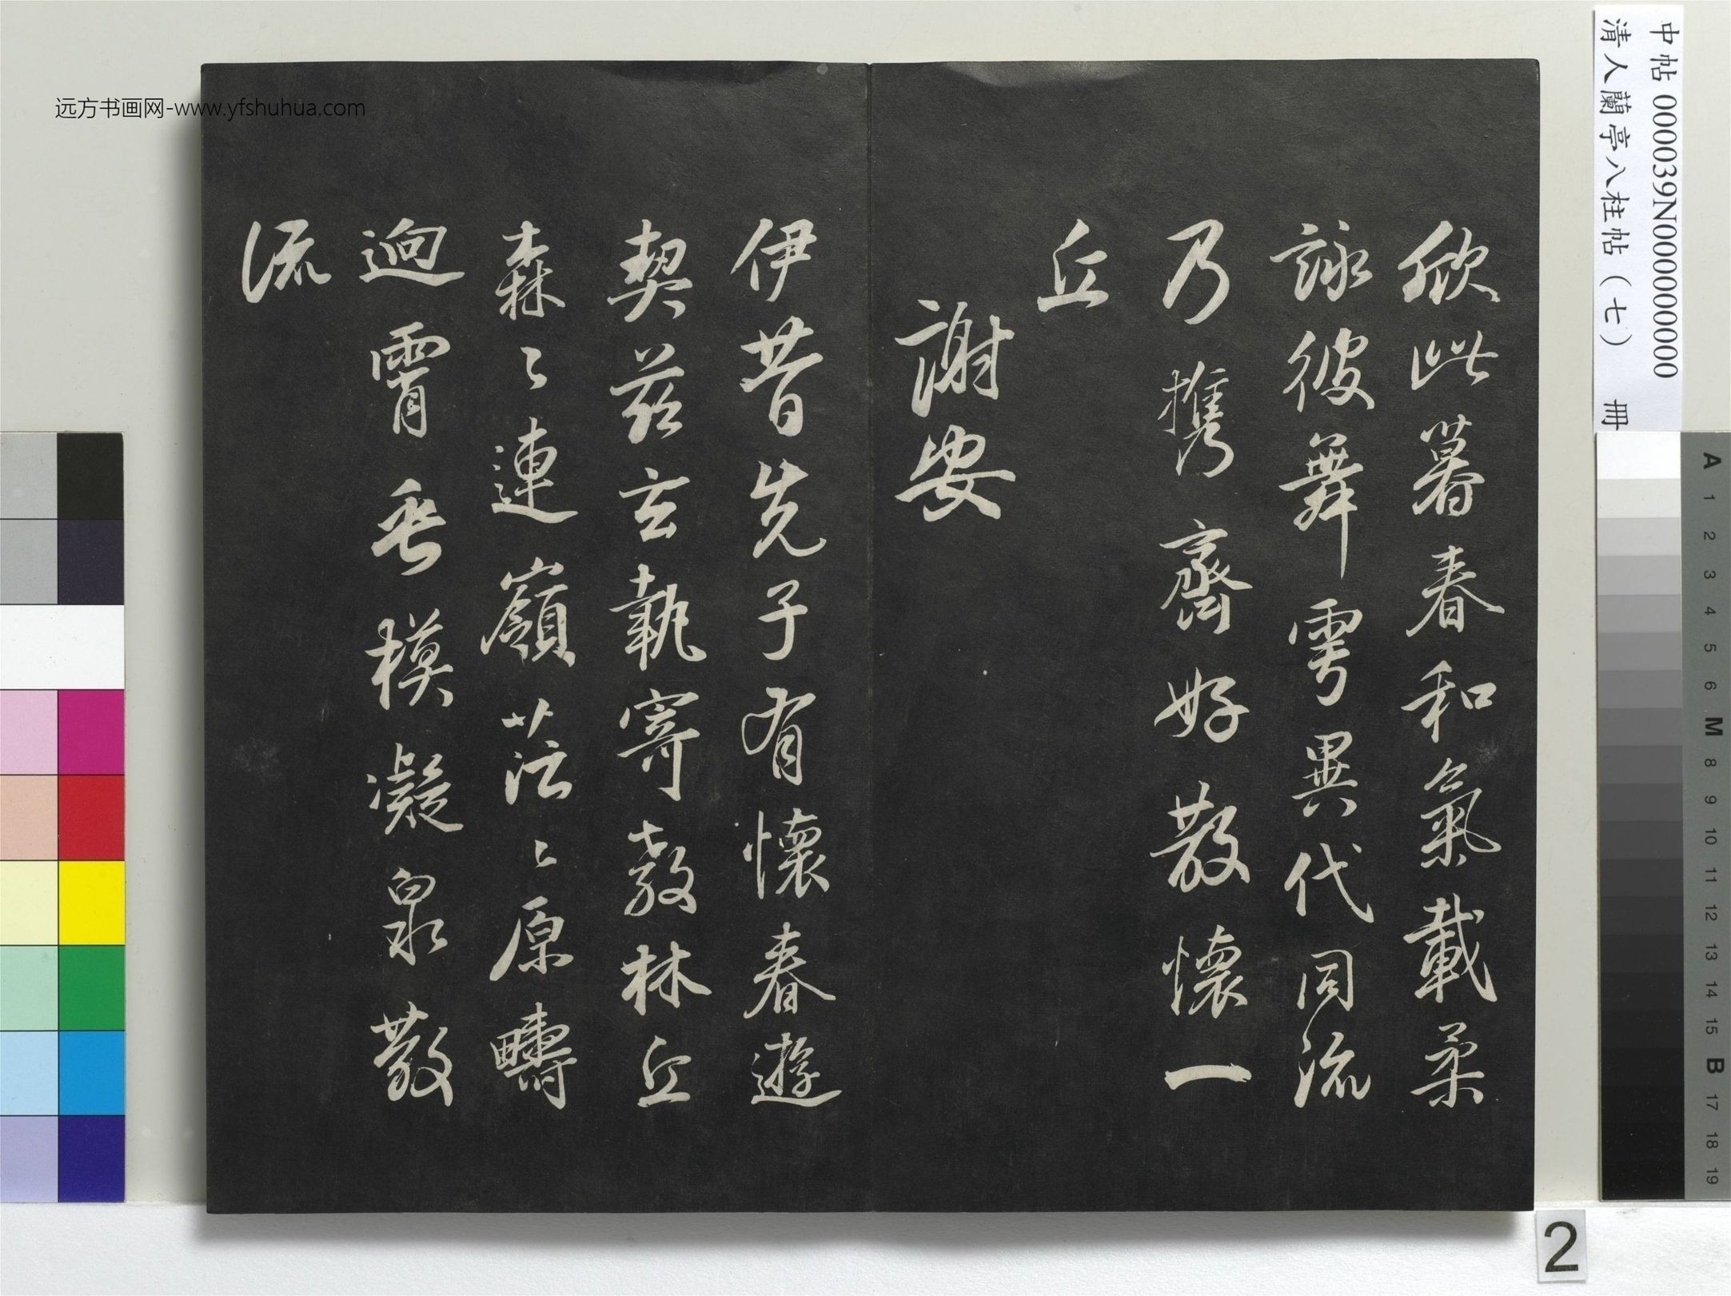 欣此暮春和氣載柔
詠彼舞雩異代同流
乃攜齊好散懷一
丘
謝安
伊昔先子有懷春遊
契茲玄執寄敖林丘
森〻連嶺茫〻原疇
迥霄垂模凝泉散
流
远方书画网-www.yfshuhua.com
中帖 000039N000000000
清人蘭亭八柱帖(七) 冊
2
A
1
2
3
4
5
6
M
8
9
10
11
12
13
14
15
B
17
18
19